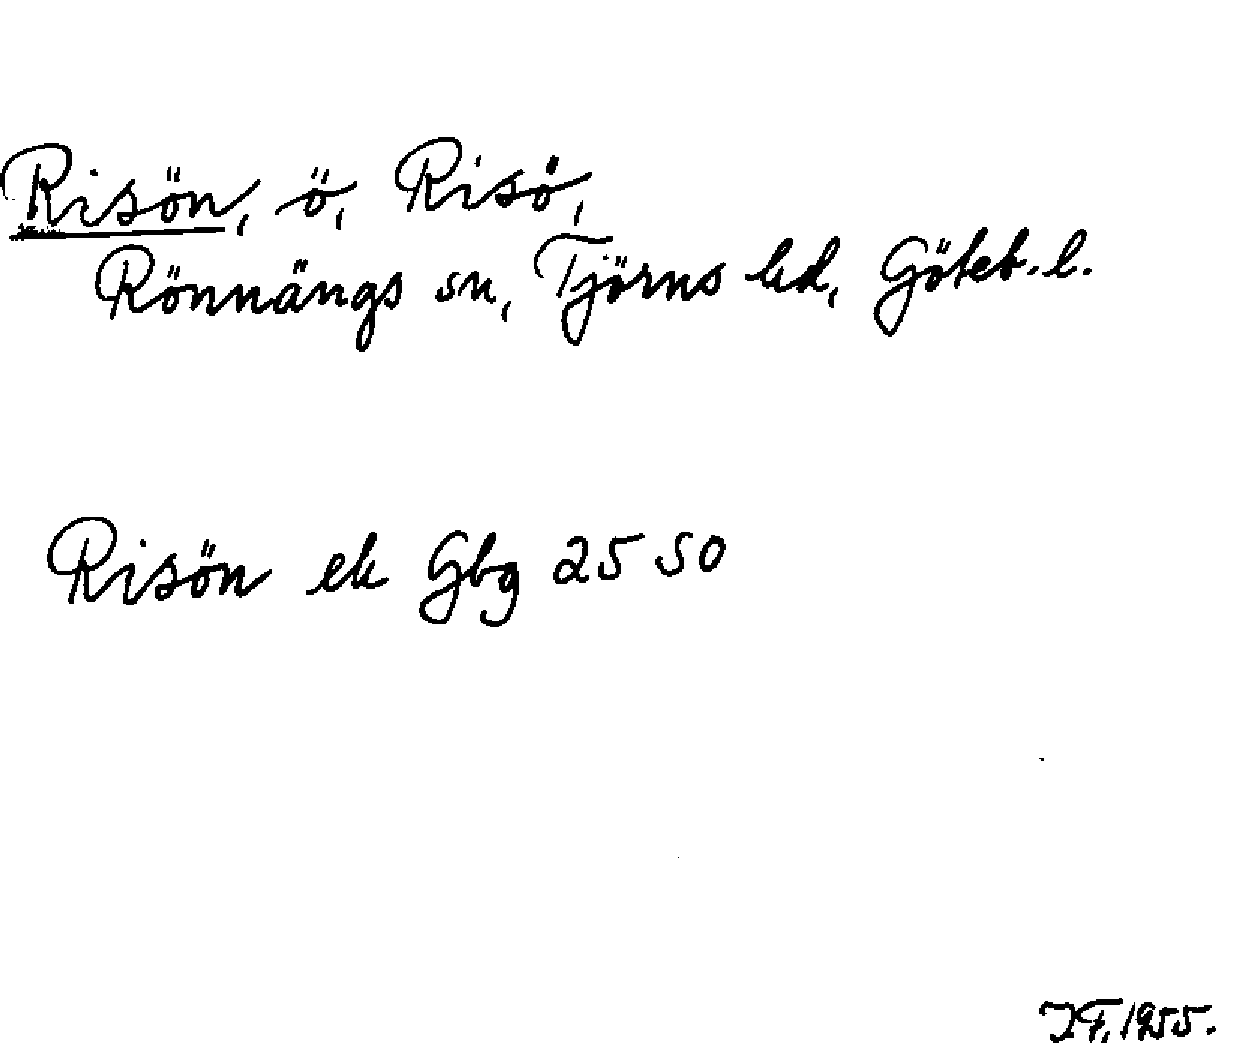 Risön, ö, Risö,
Rönnängs sn, Tjörns hd, Göteb. l.
Risön ek Gbg 25 50
1955.